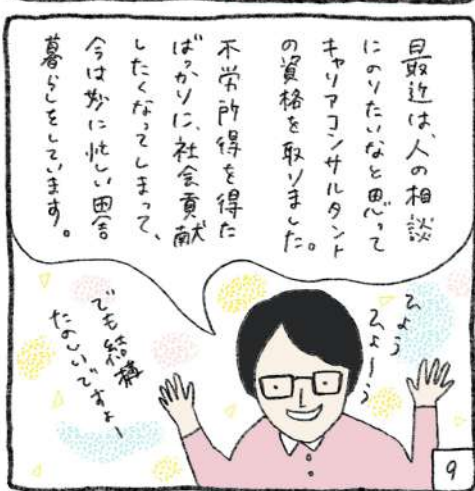 最近は、人の相談
にのりたいなと思って
キャリアコンサルタント
の資格を取りました。
不労所得を得た
ばっかりに、社会貢献
したくなってしまって、
今は妙に忙しい田舎
暮らしをしています。
ひょう
ひょ〜う
でも結構
たのしいですよー
9